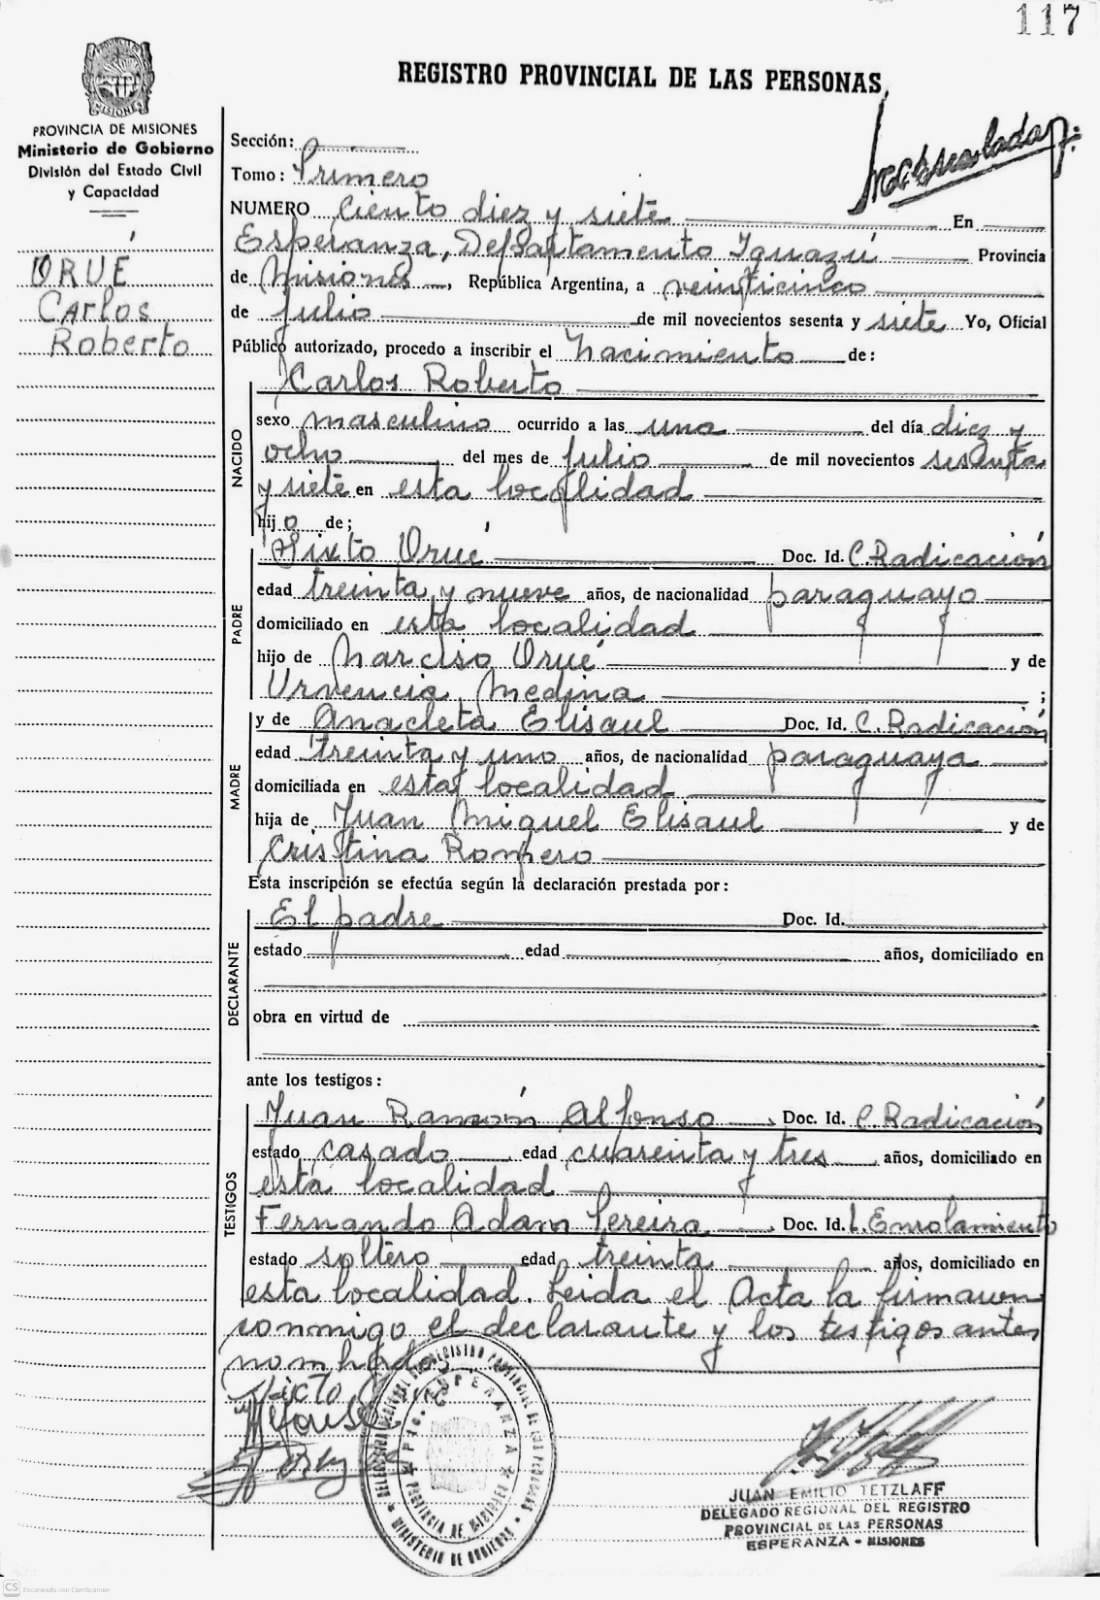 117
REGISTRO PROVINCIAL DE LAS PERSONAS
PROVINCIA DE MISIONES
Ministerio de Gobierno
División del Estado Civil
y Capacidad
ORUÉ
Carlos
Roberto
Sección:
Tomo: Primero
NUMERO Ciento diez y siete En
Esperanza, Departamento Iguazú Provincia
de Misiones, República Argentina, a veinticinco
de Julio de mil novecientos sesenta y siete Yo, Oficial
Público autorizado, procedo a inscribir el Nacimiento de:
Carlos Roberto
NACIDO
sexo masculino ocurrido a las una del día diez y
ocho del mes de Julio de mil novecientos sesenta
y siete en esta localidad
hijo de;
PADRE
Sixto Orué Doc. Id. C. Radicación
edad treinta y nueve años, de nacionalidad paraguayo
domiciliado en esta localidad
hijo de Narciso Orué y de
Urvencia Medina ;
MADRE
y de Anacleta Elisaul Doc. Id. C. Radicación
edad treinta y uno años, de nacionalidad paraguaya
domiciliada en esta localidad
hija de Juan Miguel Elisaul y de
Cristina Romero
Esta inscripción se efectúa según la declaración prestada por:
DECLARANTE
El padre Doc. Id.
estado edad años, domiciliado en
obra en virtud de
ante los testigos:
TESTIGOS
Juan Ramón Alfonso Doc. Id. C. Radicación
estado casado edad cuarenta y tres años, domiciliado en
esta localidad
Fernando Adam Pereira Doc. Id. L. Enrolamiento
estado soltero edad treinta años, domiciliado en
esta localidad. Leida el Acta la firmaron
conmigo el declarante y los testigos antes
nombrados
JUAN EMILIO TETZLAFF
DELEGADO REGIONAL DEL REGISTRO
PROVINCIAL DE LAS PERSONAS
ESPERANZA - MISIONES
ESPERANZA
PROVINCIA DE MISIONES
MINISTERIO DE GOBIERNO
CS Escaneado con CamScanner